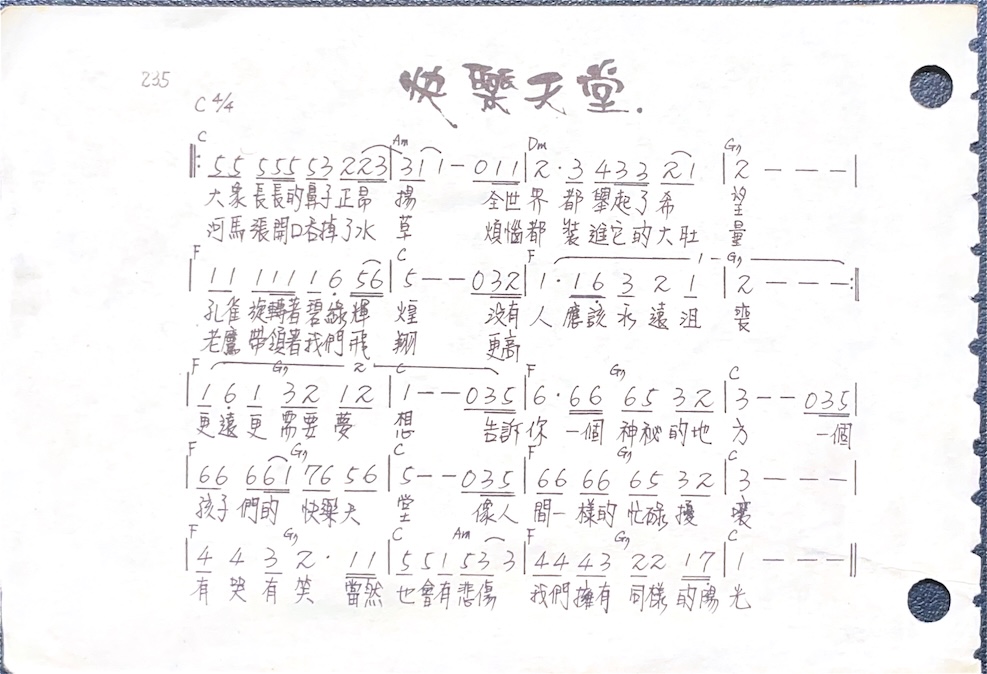 235
快樂天堂.
C 4/4
C Am Dm G7
‖: 55 555 53 223 | 31 1 - 011 | 2 · 3 433 21 | 2 - - - |
大象長長的鼻子正昂 揚 全世界都舉起了希 望
河馬張開口吞掉了水 草 煩惱都裝進它的大肚 量
F C F 1 G7
| 11 111 1 6 56 | 5 - - 032 | 1 · 16 3 2 1 | 2 - - - :‖
孔雀旋轉著碧綠輝 煌 沒有人應該永遠沮 喪
老鷹帶領著我們飛 翔 更高
F G7 2 C F G7 C
| 1 6 1 32 12 | 1 - - 035 | 6 · 66 65 32 | 3 - - 035 |
更遠更需要夢 想 告訴你一個神祕的地 方 一個
F G7 C F G7 C
| 66 661 76 56 | 5 - - 035 | 66 66 65 32 | 3 - - - |
孩子們的快樂天 堂 像人間一樣的忙碌擾 壤
F G7 C Am F G7 C
| 4 4 3 2 · 11 | 5 51 53 3 | 44 43 22 17 | 1 - - - ‖
有哭有笑 當然 也會有悲傷 我們擁有同樣的陽 光